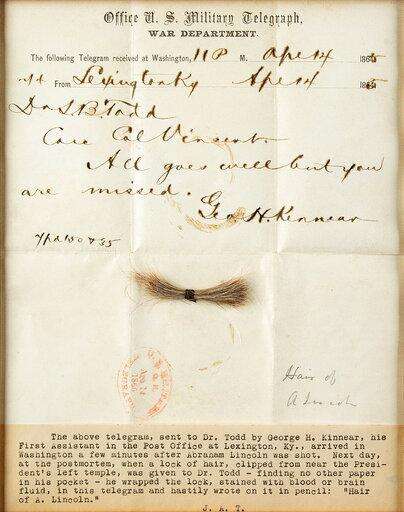 Office U. S. Military Telegraph,
WAR DEPARTMENT.
The following Telegram received at Washington, 11 P M. Apl 14 1865
From Lexington Ky Apl 14 1865
Dr L B Todd
Care Col Vincent.
All goes well but you
are missed.
Geo. H. Kinnear
Hair of
A Lincoln
The above telegram, sent to Dr. Todd by George H. Kinnear, his
First Assistant in the Post Office at Lexington, Ky., arrived in
Washington a few minutes after Abraham Lincoln was shot. Next day,
at the postmortem, when a lock of hair, clipped from near the Presi-
dent's left temple, was given to Dr. Todd - finding no other paper
in his pocket - he wrapped the lock, stained with blood or brain
fluid, in this telegram and hastily wrote on it in pencil: "Hair
of A. Lincoln."
J. A. T.